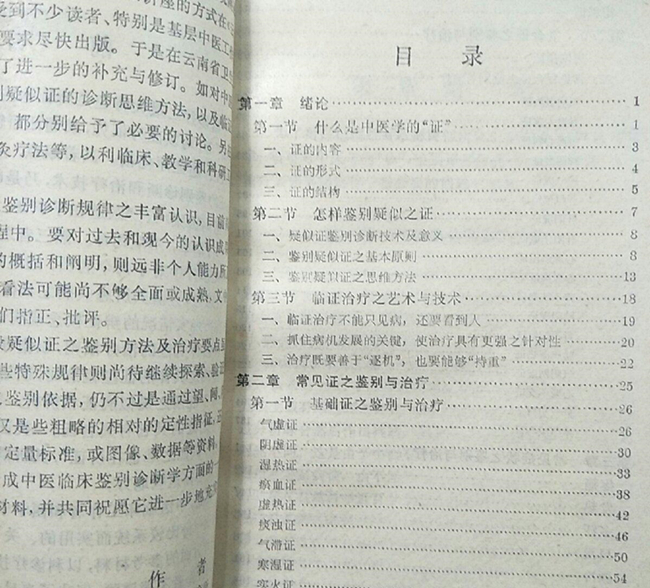 受到不少读者、特别是基层中医工
要求尽快出版。于是在云南省卫
了进一步的补充与修订。如对中
别疑似证的诊断思维方法，以及临
都分别给予了必要的讨论。另
灸疗法等，以利临床、教学和科研
鉴别诊断规律之丰富认识，目前
程中。要对过去和现今的认识成
的概括和阐明，则远非个人能力所
看法可能尚不够全面或成熟，文
们指正、批评。
疑似证之鉴别方法及治疗要点
些特殊规律则尚待继续探索、验证
鉴别依据，仍不过是通过望、闻、
又是些粗略的相对的定性指征，
定量标准，或图像、数据等资料
成中医临床鉴别诊断学方面的一
材料，并共同祝愿它进一步地充实
作者
目 录
第一章 绪论 1
第一节 什么是中医学的“证” 1
一、证的内容 3
二、证的形式 4
三、证的结构 5
第二节 怎样鉴别疑似之证 7
一、疑似证鉴别诊断技术及意义 8
二、鉴别疑似证之基本原则 8
三、鉴别疑似证之思维方法 13
第三节 临证治疗之艺术与技术 18
一、临证治疗不能只见病，还要看到人 19
二、抓住病机发展的关键，使治疗具有更强之针对性 20
三、治疗既要善于“逐机”，也要能够“持重” 22
第二章 常见证之鉴别与治疗 25
第一节 基础证之鉴别与治疗 26
气虚证 26
阴虚证 30
湿热证 33
瘀血证 38
虚热证 42
痰浊证 46
气滞证 50
寒湿证 54
实火证